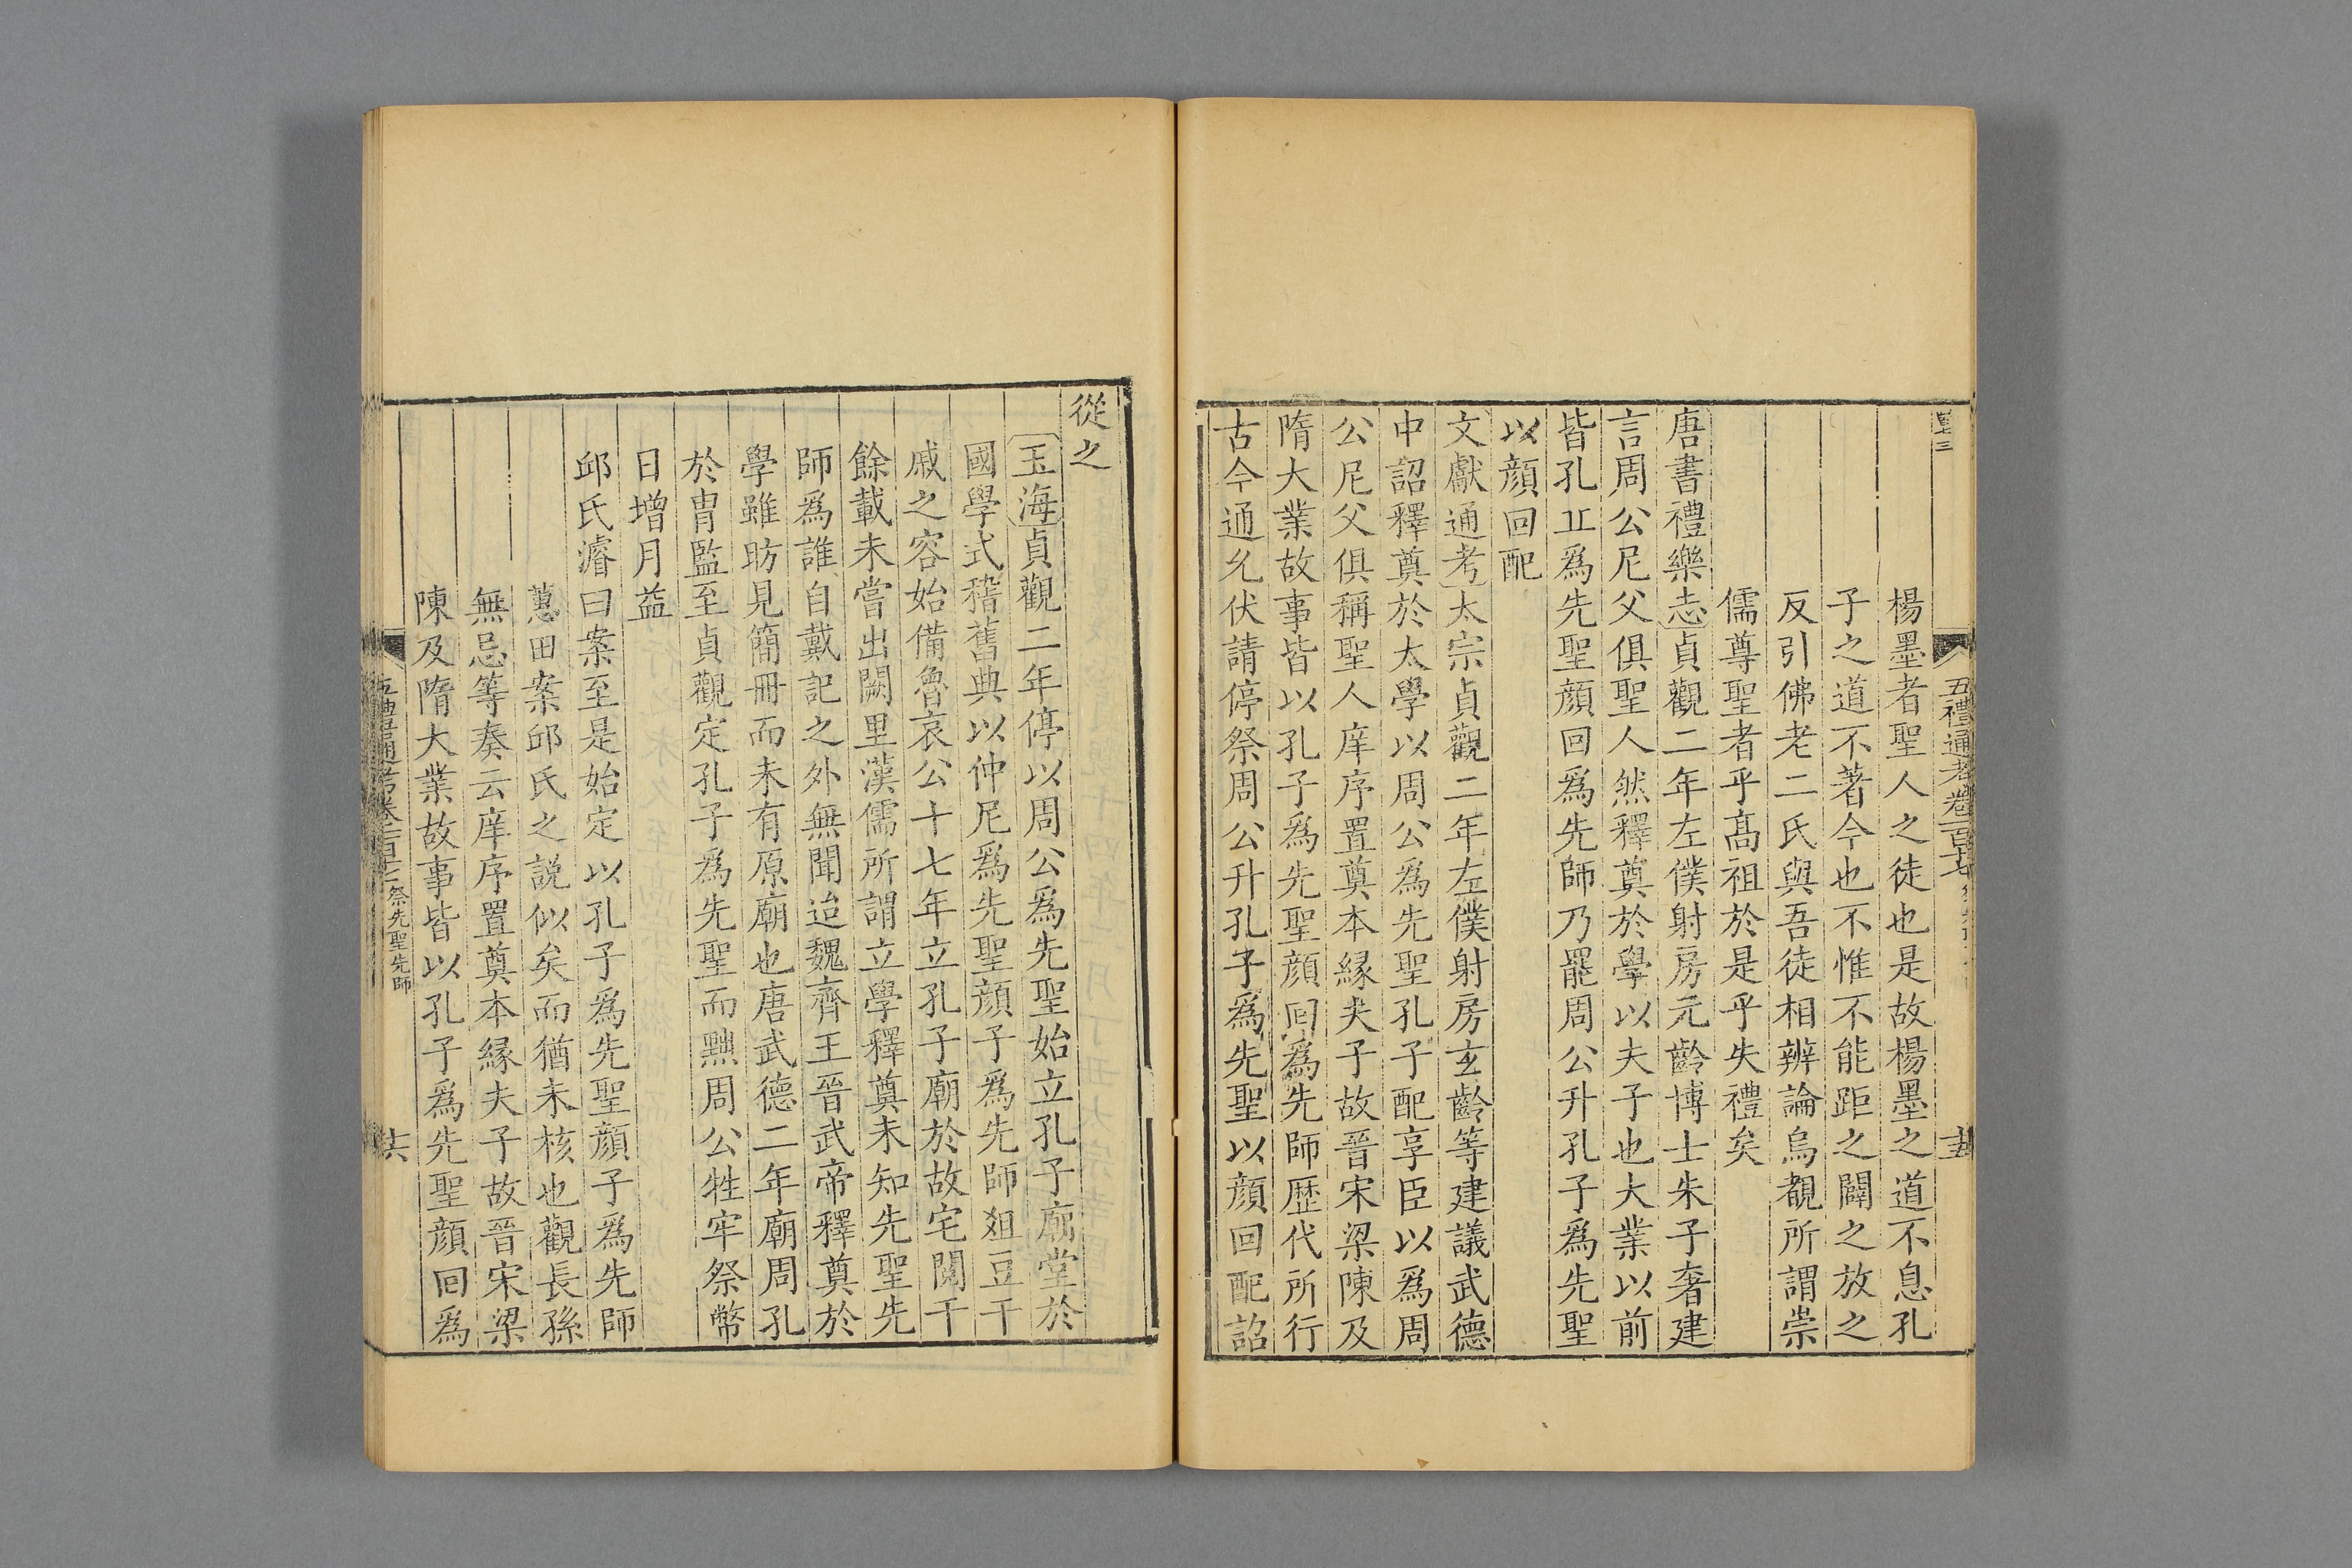 五禮通考卷一百十七
楊墨者聖人之徒也是故楊墨之道不息孔
子之道不著今也不惟不能距之闢之放之
反引佛老二氏與吾徒相辨論烏覩所謂崇
儒尊聖者乎髙祖於是乎失禮矣
唐書禮樂志貞觀二年左僕射房元齡博士朱子奢建
言周公尼父俱聖人然釋奠於學以夫子也大業以前
皆孔丘爲先聖顔回爲先師乃罷周公升孔子爲先聖
以顔回配
文獻通考太宗貞觀二年左僕射房玄齡等建議武德
中詔釋奠於太學以周公爲先聖孔子配享臣以爲周
公尼父俱稱聖人庠序置奠本緣夫子故晉宋梁陳及
隋大業故事皆以孔子爲先聖顔回爲先師歷代所行
古今通允伏請停祭周公升孔子爲先聖以顔回配詔
從之
玉海貞觀二年停以周公爲先聖始立孔子廟堂於
國學式稽舊典以仲尼爲先聖顔子爲先師俎豆干
戚之容始備魯哀公十七年立孔子廟於故宅閱千
餘載未嘗出闕里漢儒所謂立學釋奠未知先聖先
師爲誰自戴記之外無聞迨魏齊王晉武帝釋奠於
學雖昉見簡冊而未有原廟也唐武德二年廟周孔
於胄監至貞觀定孔子爲先聖而黜周公牲牢祭幣
日增月益
邱氏濬曰案至是始定以孔子爲先聖顔子爲先師
蕙田案邱氏之説似矣而猶未核也觀長孫
無忌等奏云庠序置奠本緣夫子故晉宋梁
陳及隋大業故事皆以孔子爲先聖顔回爲
祭先聖先師